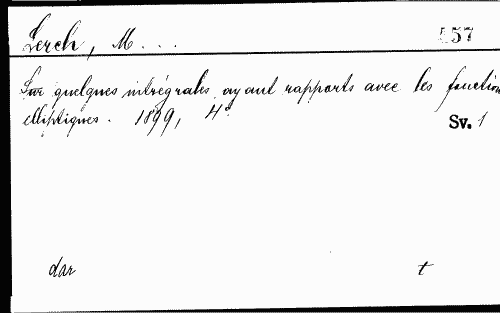 Lerch, M...
557
Sur quelques intégrales ayant rapports avec les fonction
elliptiques. 1899, 4°.
Sv. 1
dar
t